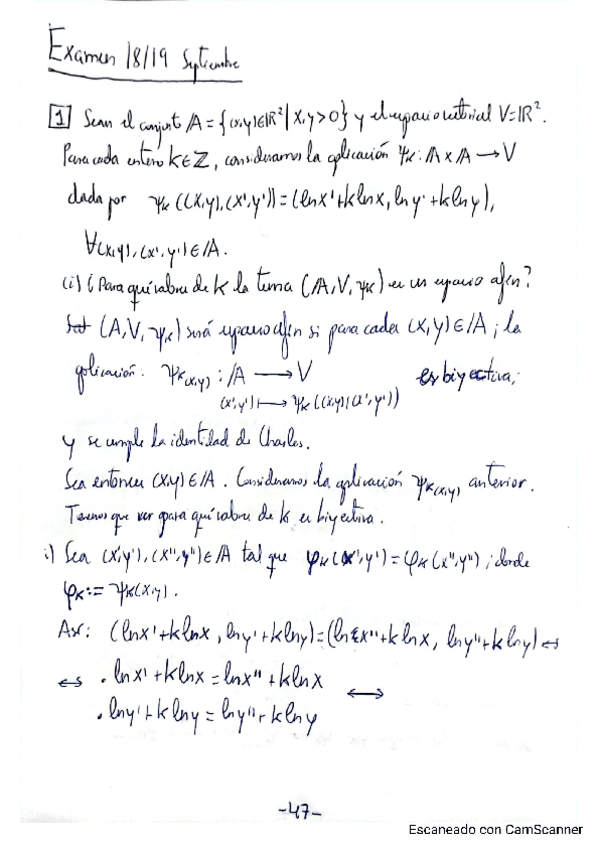 Examen 18/19 Septiembre
1 Sean el conjunto A = {(x,y)∈ℝ² | x,y>0} y el espacio vectorial V=ℝ².
Para cada entero k∈ℤ, consideramos la aplicación ψk: A×A → V
dada por ψk((x,y),(x',y')) = (lnx'+klnx, lny'+klny),
∀(x,y),(x',y')∈A.
(i) ¿Para qué valores de k la terna (A,V,ψk) es un espacio afín?
(A,V,ψk) será espacio afín si para cada (x,y)∈A, la
aplicación: ψk(x,y) : A → V es biyectiva,
(x',y') ↦ ψk((x,y),(x',y'))
y se cumple la identidad de Charles.
Sea entonces (x,y)∈A. Consideramos la aplicación ψk(x,y) anterior.
Tenemos que ver para qué valores de k es biyectiva.
i) Sea (x',y'),(x'',y'')∈A tal que φk(x',y')=φk(x'',y''), donde
φk:= ψk(x,y).
Así: (lnx'+klnx, lny'+klny)=(lnx''+klnx, lny''+klny) ⇔
⇔ · lnx'+klnx = lnx''+klnx ⟷
· lny'+klny = lny''+klny
-47-
Escaneado con CamScanner